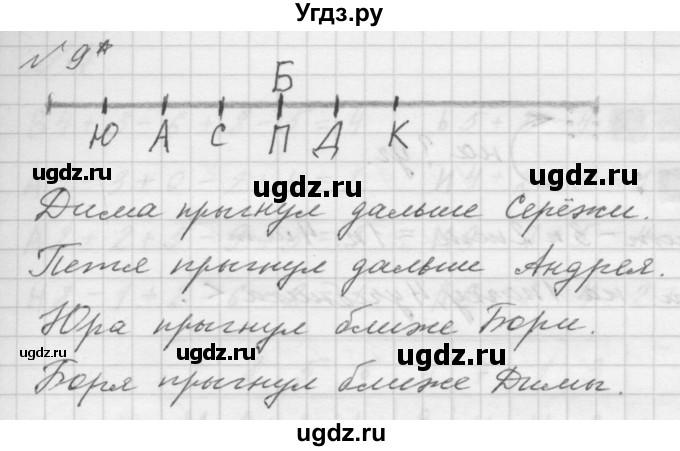 Угдз.ру
№ 9*
Б
Ю А С П Д К
ugdz.ru ugdz.ru ugdz.ru
Дима прыгнул дальше Серёжи.
Петя прыгнул дальше Андрея.
ugdz.ru
Юра прыгнул ближе Бори.
ugdz.ru ugdz.ru
Боря прыгнул ближе Димы.
ugdz.ru